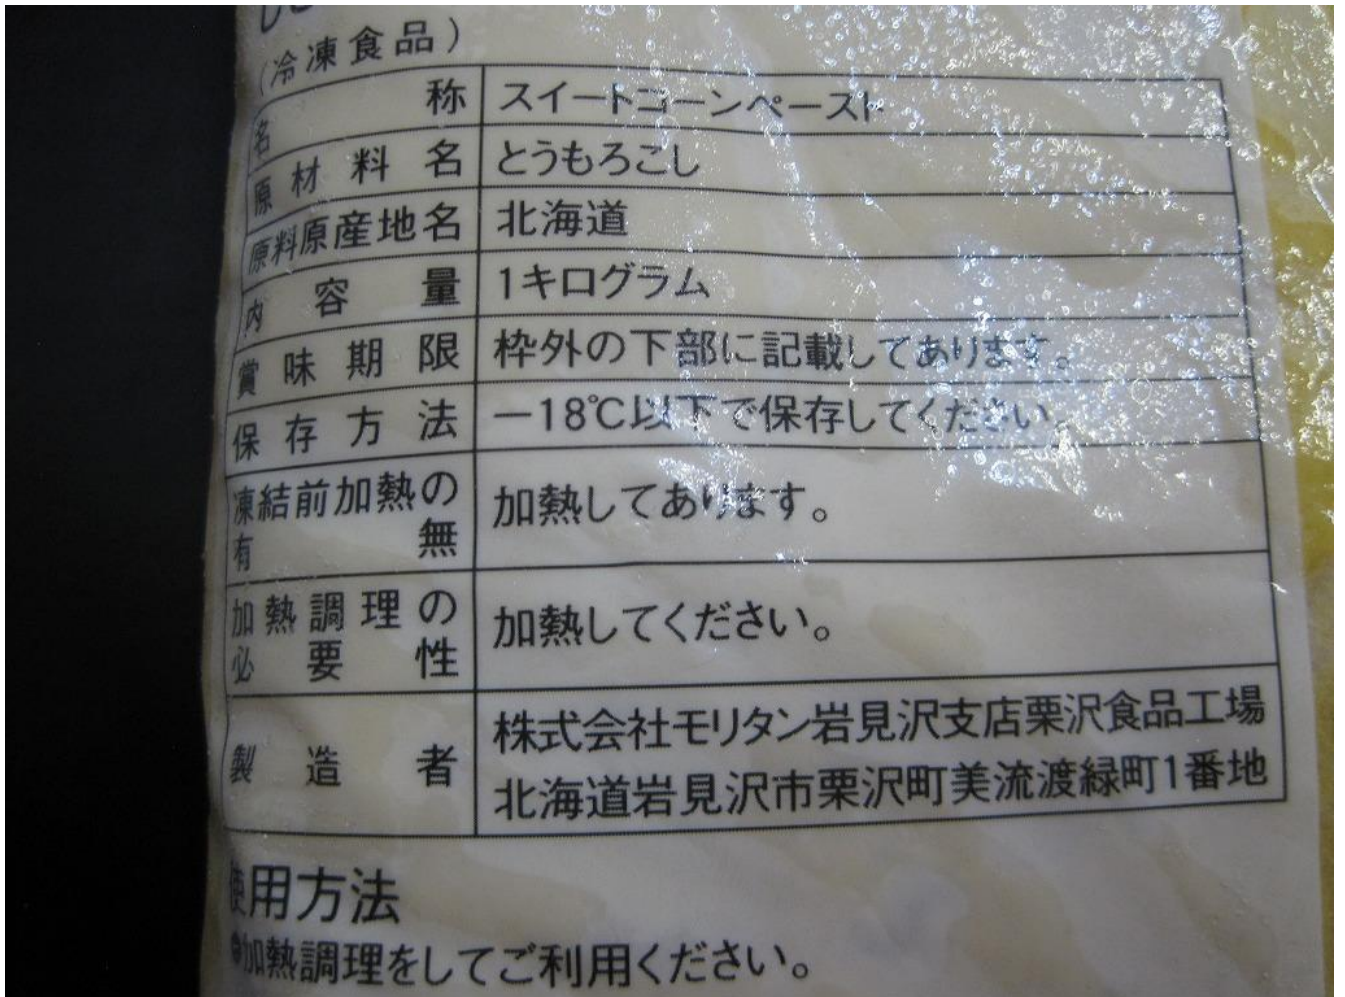 (冷凍食品)
名称 スイートコーンペースト
原材料名 とうもろこし
原料原産地名 北海道
内容量 1キログラム
賞味期限 枠外の下部に記載してあります。
保存方法 －18℃以下で保存してください。
凍結前加熱の
有無 加熱してあります。
加熱調理の
必要性 加熱してください。
製造者 株式会社モリタン岩見沢支店栗沢食品工場
北海道岩見沢市栗沢町美流渡緑町1番地
使用方法
●加熱調理をしてご利用ください。